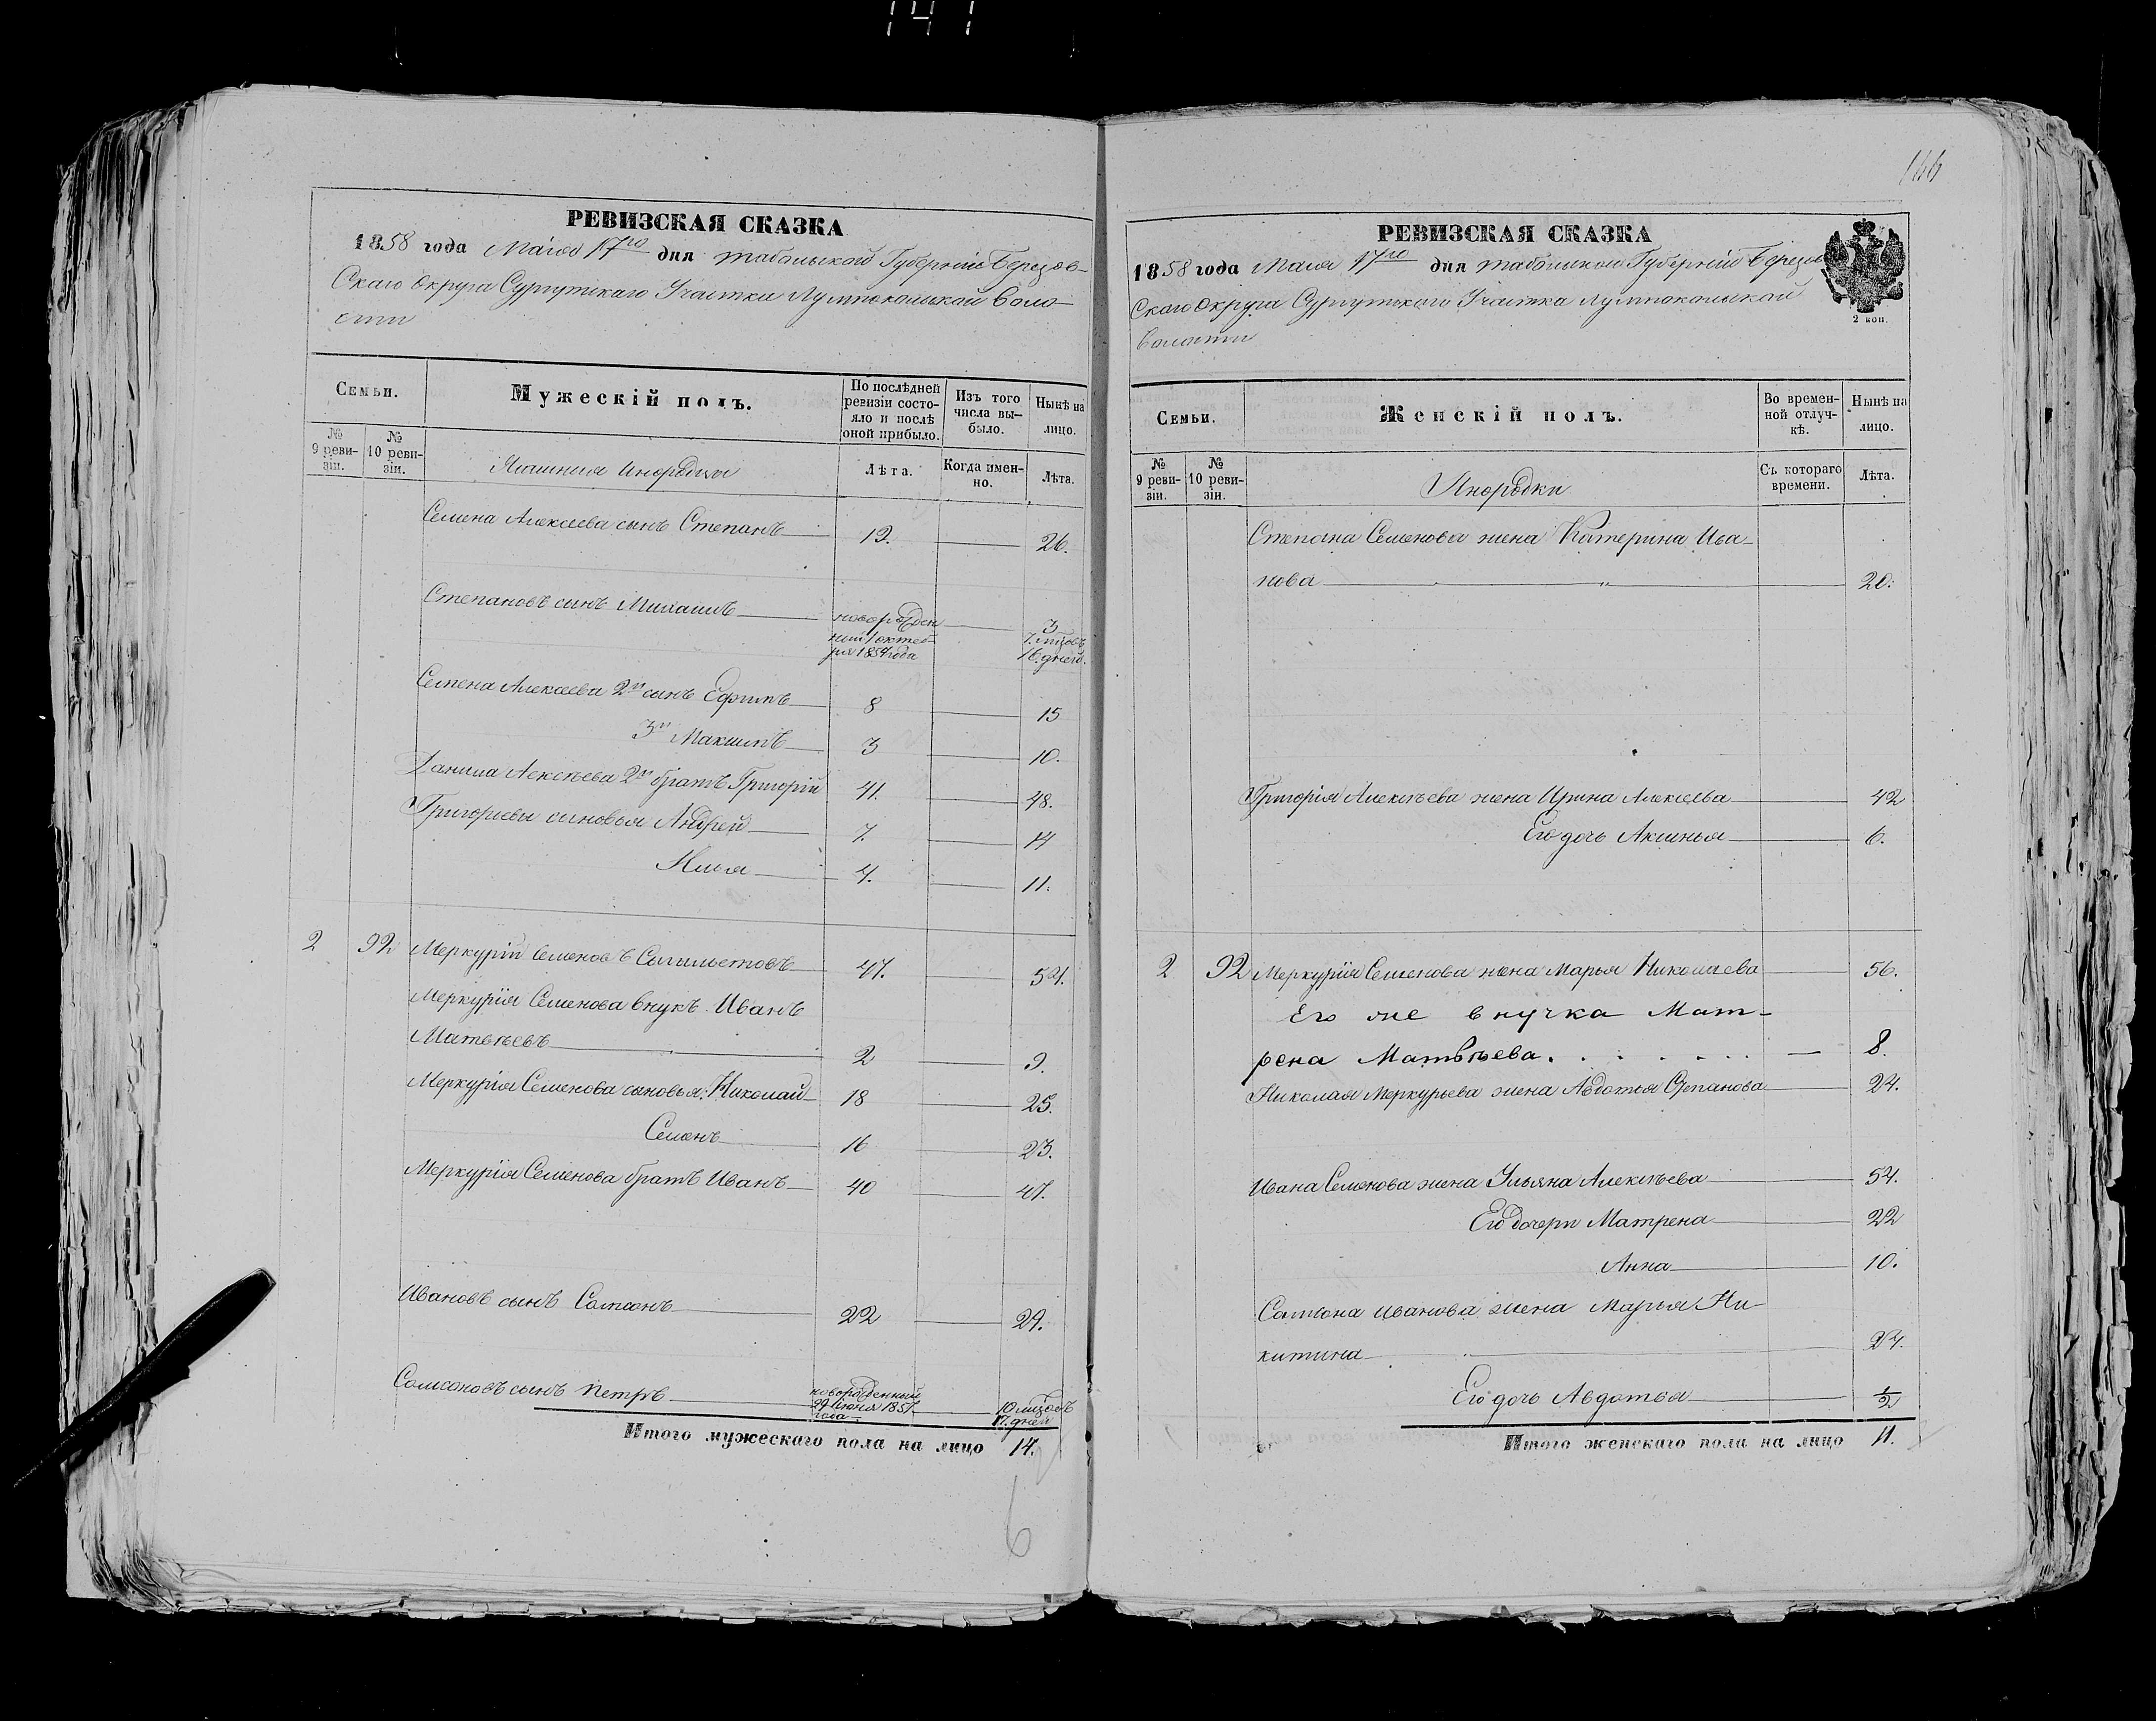 141
РЕВИЗСКАЯ СКАЗКА
1858 года Маія 17го дня Табольской Губерніи Березов-
Скаго Округа Сургутскаго Участка Лумпокольской Воло-
сти
Семьи.
Мужескій полъ.
По послѣдней ревизіи состо-яло и послѣ оной прибыло.
Изъ того числа вы-было.
Нынѣ на лицо.
№ 9 реви-зіи.
№ 10 реви-зіи.
инородцы
Лѣта.
Когда имен-но.
Лѣта.
Семена Алексеева сынъ Степанъ 19. 26.
Степановъ сынъ Михаилъ
новорожден
ный 1 октяб
ря 1854 года
3
7. мцовъ
16. дней.
Семена Алексеева 2й сынъ Ефимъ 8 15
3й Максимъ 3 10.
Данила Алексѣева 2й братъ Григорій 41. 48.
Григорьевы сыновья Андрей 7. 14
Илья 4. 11.
2 92 Меркурій Семеновъ 47. 54.
Меркурія Семенова внукъ Иванъ
Матвѣевъ 2 9.
Меркурія Семенова сыновья: Николай 18 25.
Семенъ 16 23.
Меркурія Семенова братъ Иванъ 40 47.
Ивановъ сынъ Самсонъ 22 29.
Самсоновъ сынъ Петръ
новорожденный
29 Іюня 1857
года
10 мцовъ
17. дней
Итого мужескаго пола на лицо 14.
6
146
РЕВИЗСКАЯ СКАЗКА
1858 года Маія 17го дня Табольской Губерніи Березов
Скаго Округа Сургутскаго Участка Лумпокольской
Волости
2 коп.
Семьи.
Женскій полъ.
Во времен-ной отлуч-кѣ.
Нынѣ на лицо.
№ 9 реви-зіи.
№ 10 реви-зіи.
Инородки
Съ котораго времени.
Лѣта.
Степана Семенова жена Катерина Ива-
нова 20.
Григорія Алексѣева жена Ирина Алексеева 42
Его дочь Аксинья 6.
2 92 Меркурія Семенова жена Марья Николаева 56.
Его же внучка Мат-
рена Матвѣева 8.
Николая Меркурьева жена Авдотья Степанова 24.
Ивана Семенова жена Ульяна Алексѣева 54.
Его дочери Матрена 22
Анна 10.
Самсона Иванова жена Марья Ни-
китина 24.
Его дочь Авдотья 1/2
Итого женскаго пола на лицо 11.